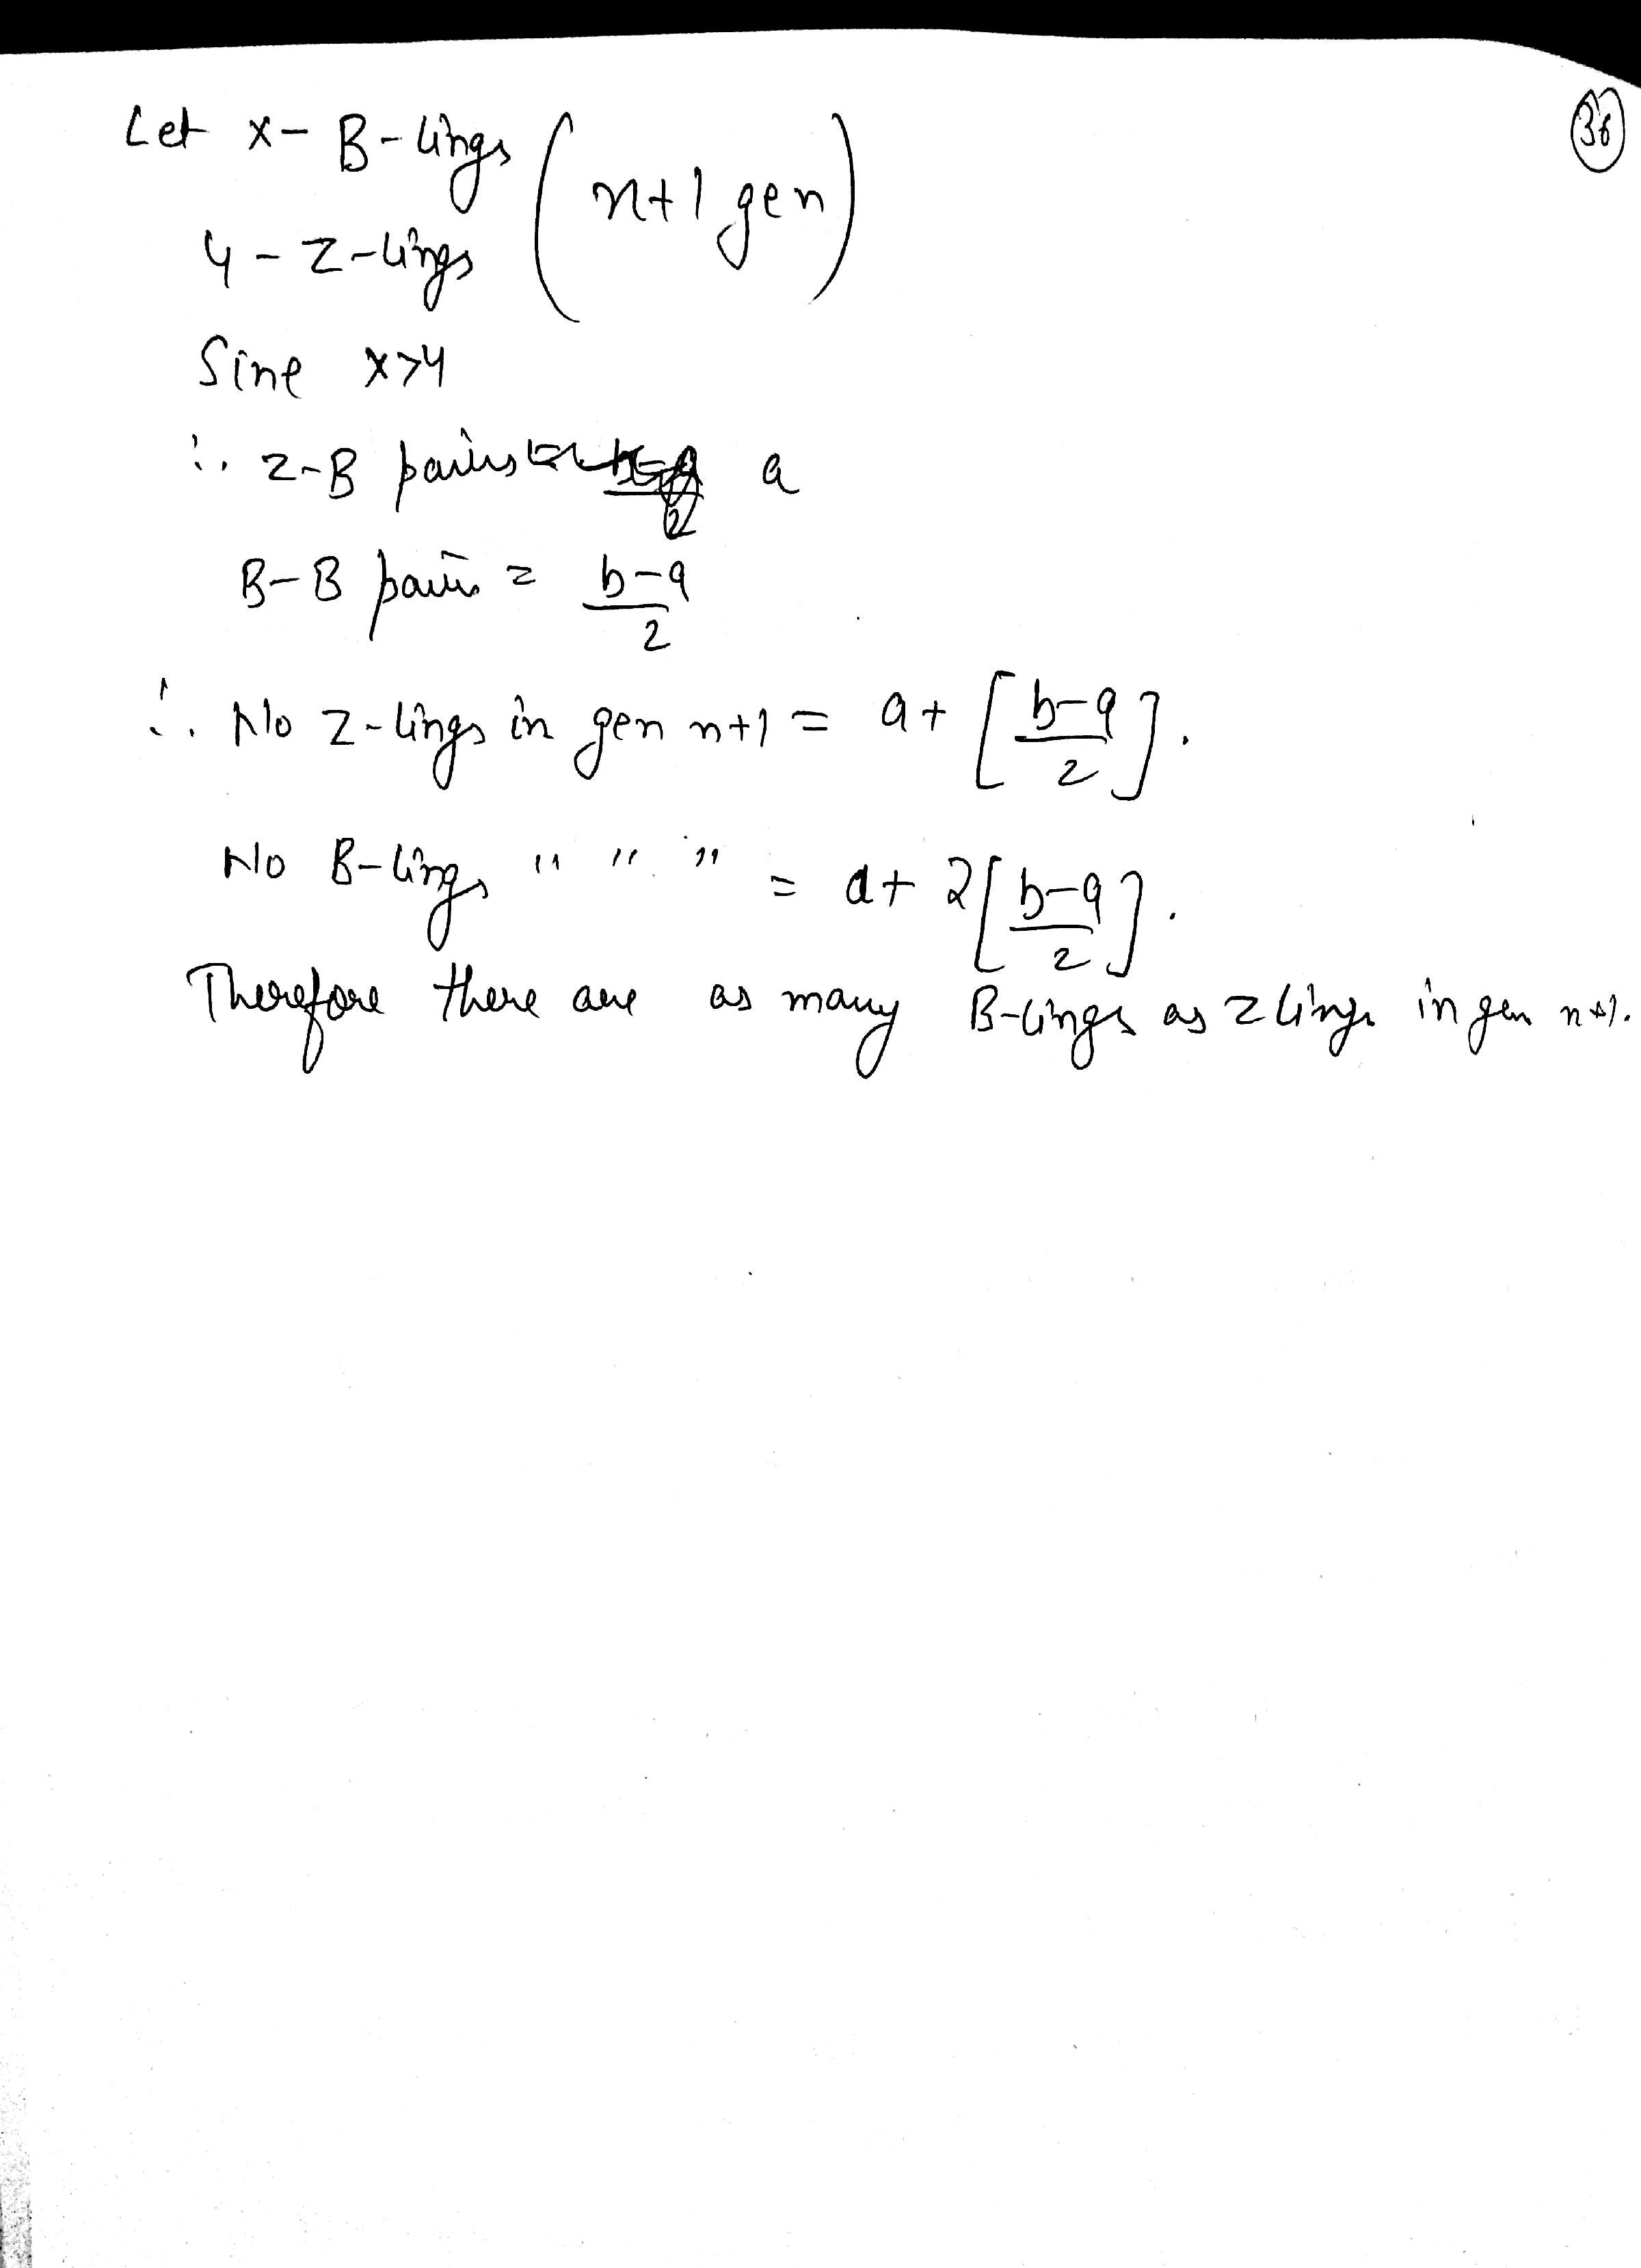 36
Let x - B-lings
(n+1 gen)
y - Z-lings
Sine x>y
∴ Z-B pairs a
B-B pairs = b-a/2
∴ No Z-lings in gen n+1 = a + [b-a/2].
No B-lings " " " = a + 2[b-a/2].
Therefore there are as many B-lings as Z lings in gen n+1.